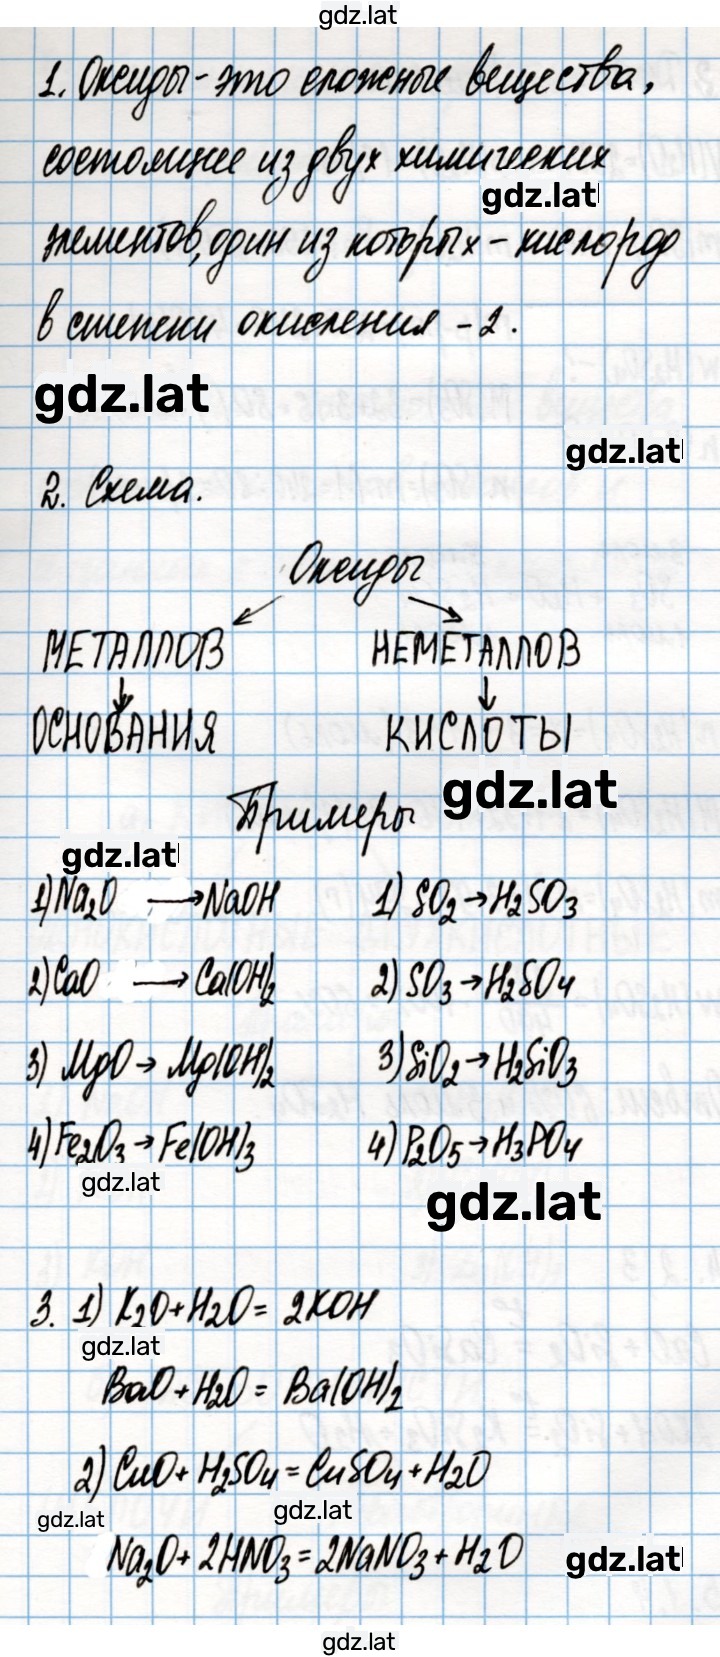 gdz.lat
1. Оксиды - это сложные вещества,
состоящие из двух химических
gdz.lat
элементов, один из которых - кислород
в степени окисления -2.
gdz.lat
gdz.lat
2. Схема.
Оксиды
МЕТАЛЛОВ НЕМЕТАЛЛОВ
ОСНОВАНИЯ КИСЛОТЫ
gdz.lat
Примеры
gdz.lat
1) Na₂O → NaOH 1) SO₂ → H₂SO₃
2) CaO → Ca(OH)₂ 2) SO₃ → H₂SO₄
3) MgO → Mg(OH)₂ 3) SiO₂ → H₂SiO₃
4) Fe₂O₃ → Fe(OH)₃ 4) P₂O₅ → H₃PO₄
gdz.lat
gdz.lat
3. 1) K₂O + H₂O = 2KOH
gdz.lat
BaO + H₂O = Ba(OH)₂
2) CuO + H₂SO₄ = CuSO₄ + H₂O
gdz.lat
gdz.lat
Na₂O + 2HNO₃ = 2NaNO₃ + H₂O
gdz.lat
gdz.lat